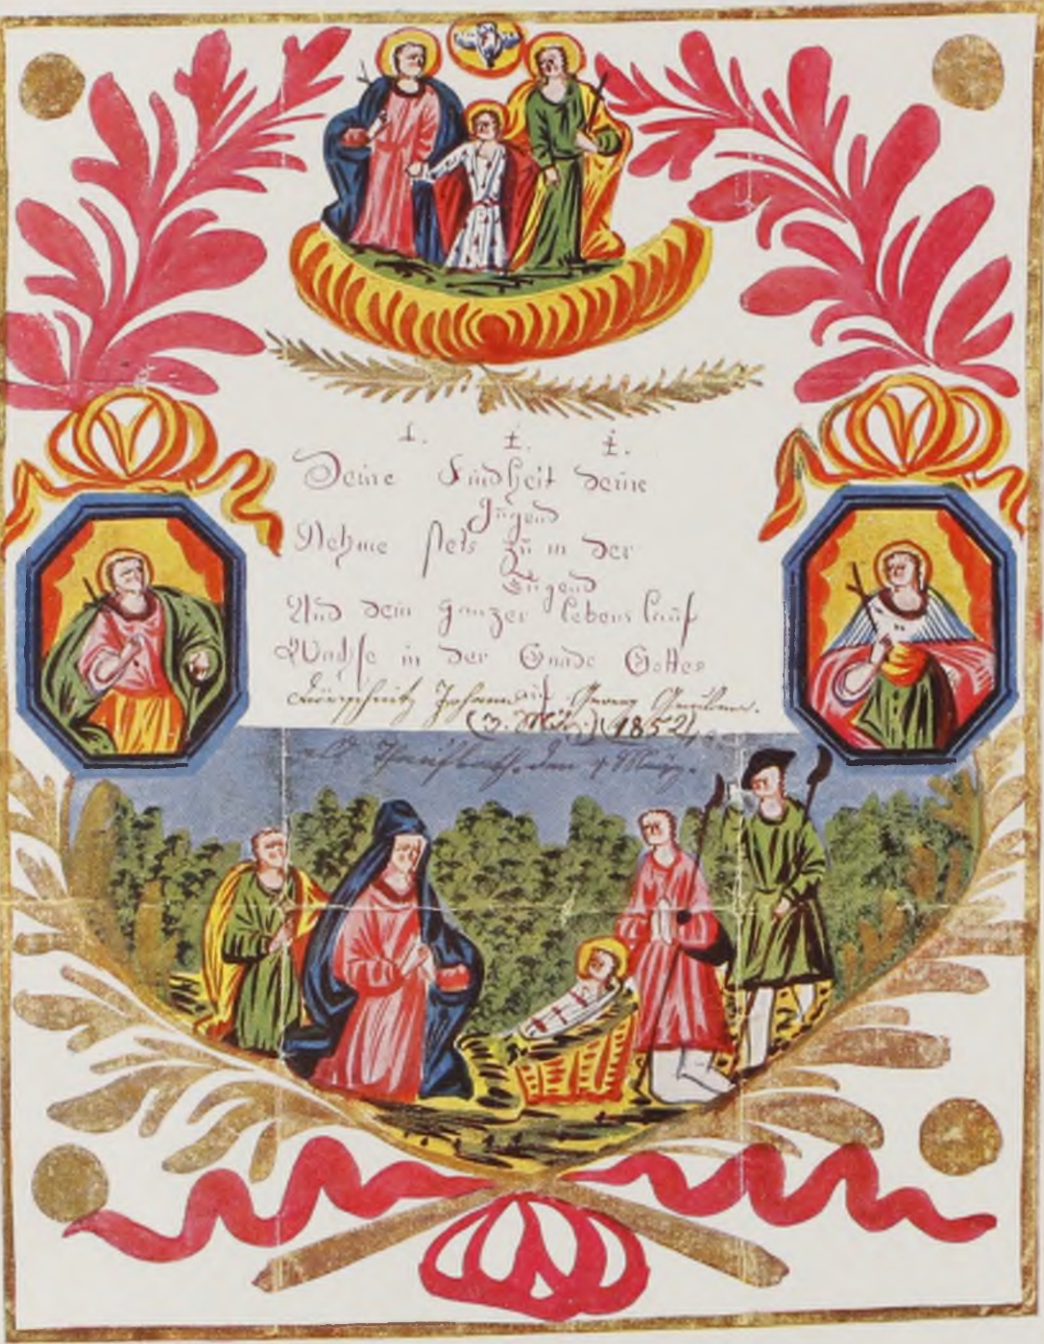 ‡. ‡. ‡.
Deine Kindheit deine
Jugend
Nehme stets zu in der
Tugend
Und dein ganzer lebens lauf
Wachse in der Gnade Gottes
Johann Georg
(3. März) 1852
den 4 März.